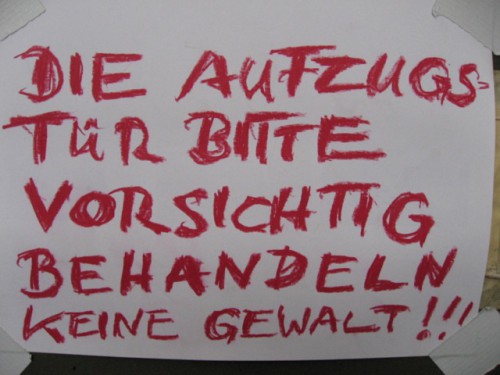 DIE AUFZUGS-
TÜR BITTE
VORSICHTIG
BEHANDELN
KEINE GEWALT!!!